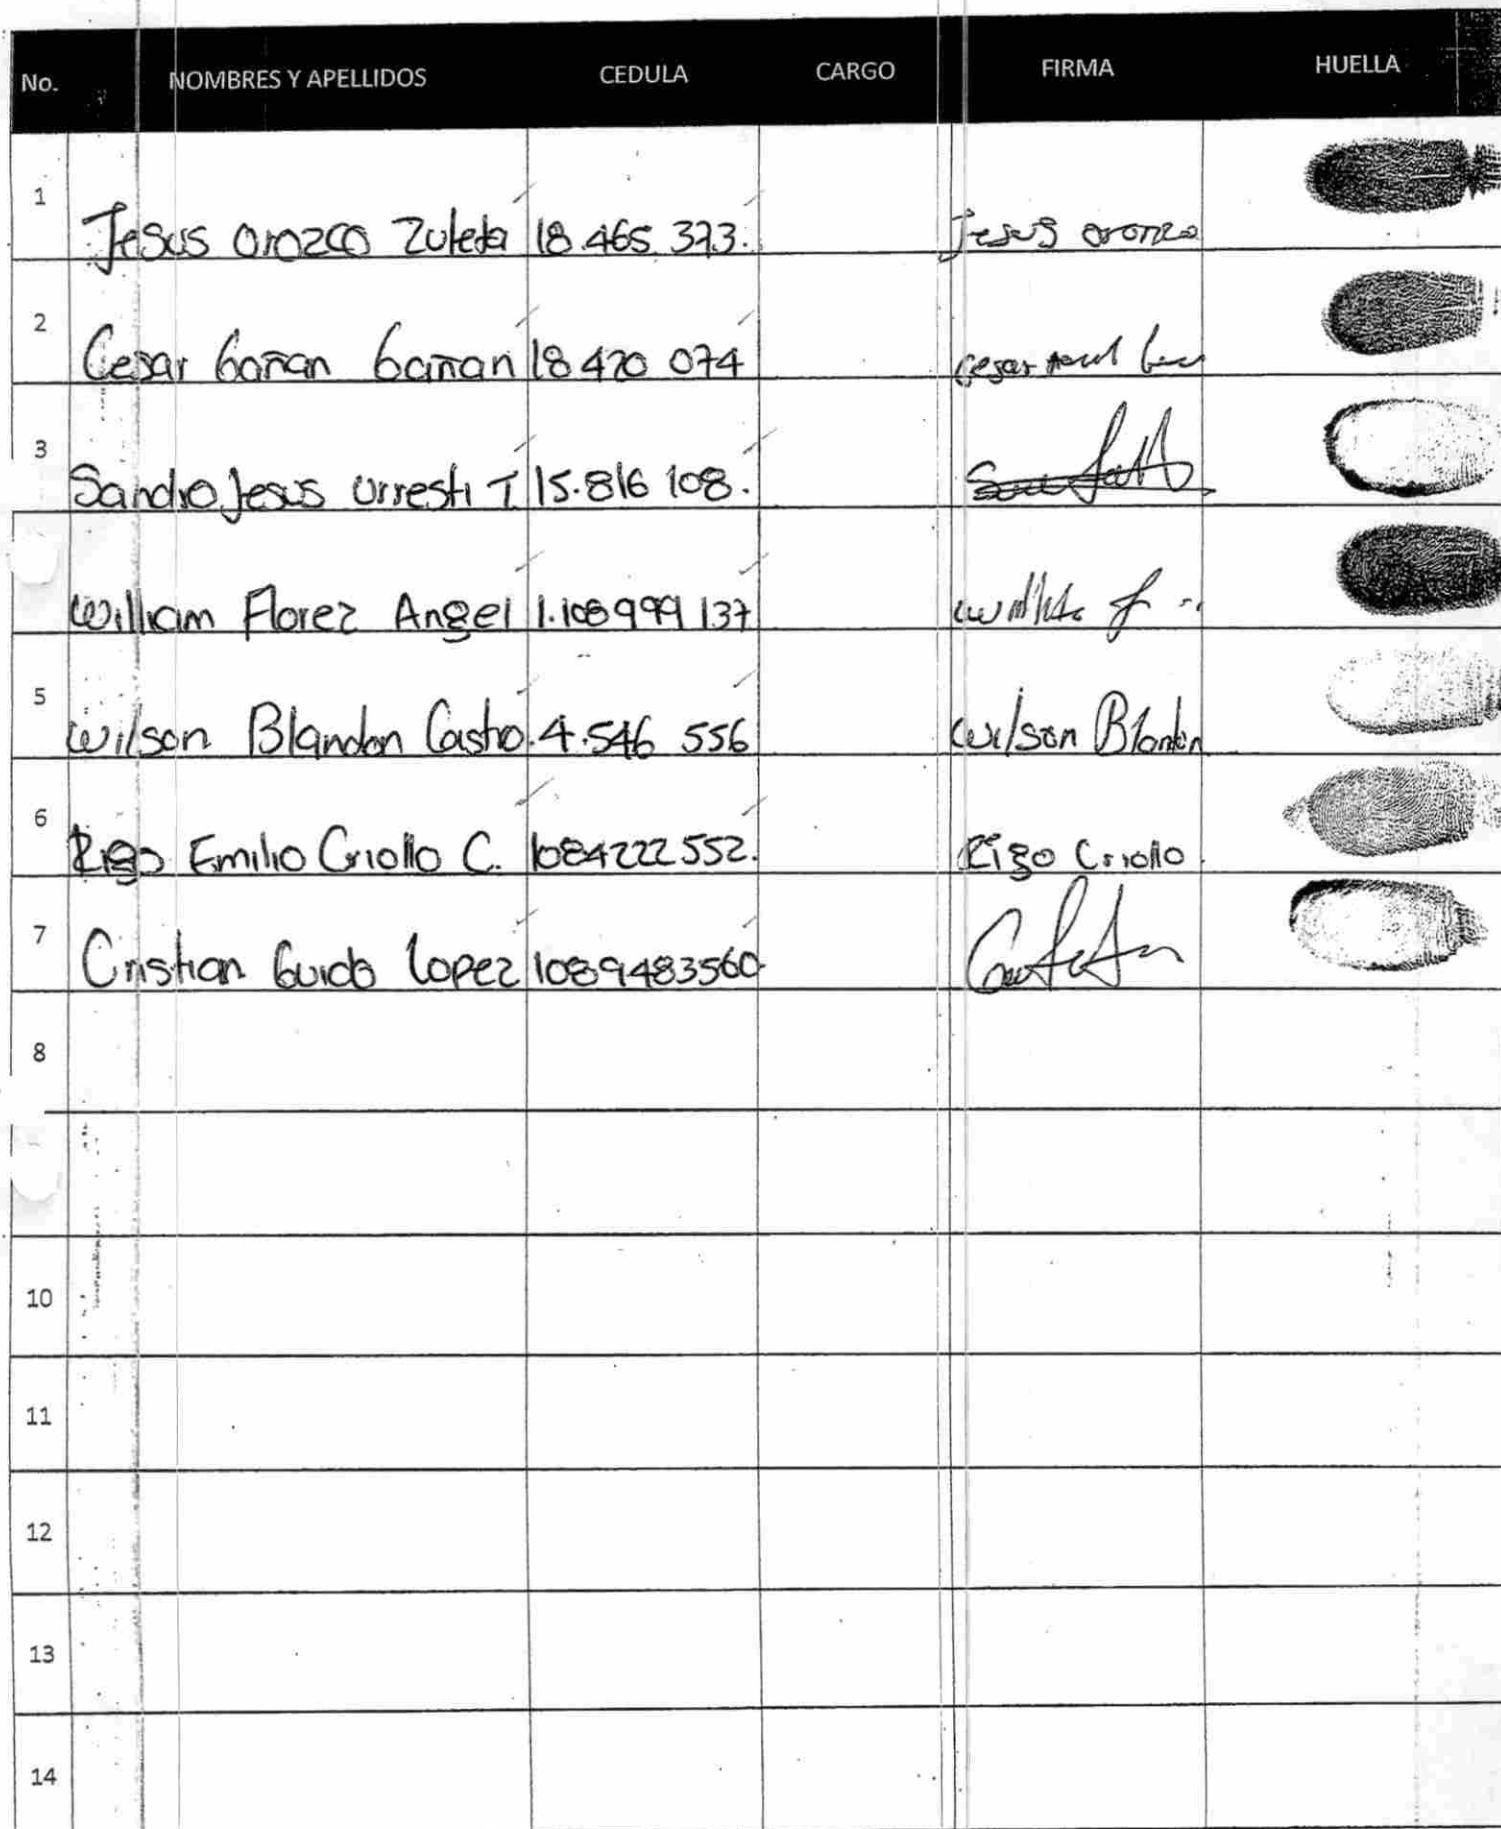 No. NOMBRES Y APELLIDOS CEDULA CARGO FIRMA HUELLA
1 Jesus Orozco Zuleta 18.465.373. Jesus
2 Cesar Gañan Gañan 18 420 074 cesar
3 Sandro Jesus Urresti T. 15.816 108.
William Florez Angel 1.108999 137
5 Wilson Blandon Castro. 4.546 556 Wilson Blandon
6 Rigo Emilio Criollo C. 1084222552. Rigo Criollo.
7 Cristian Guido Lopez 1089483560.
8
10
11
12
13
14